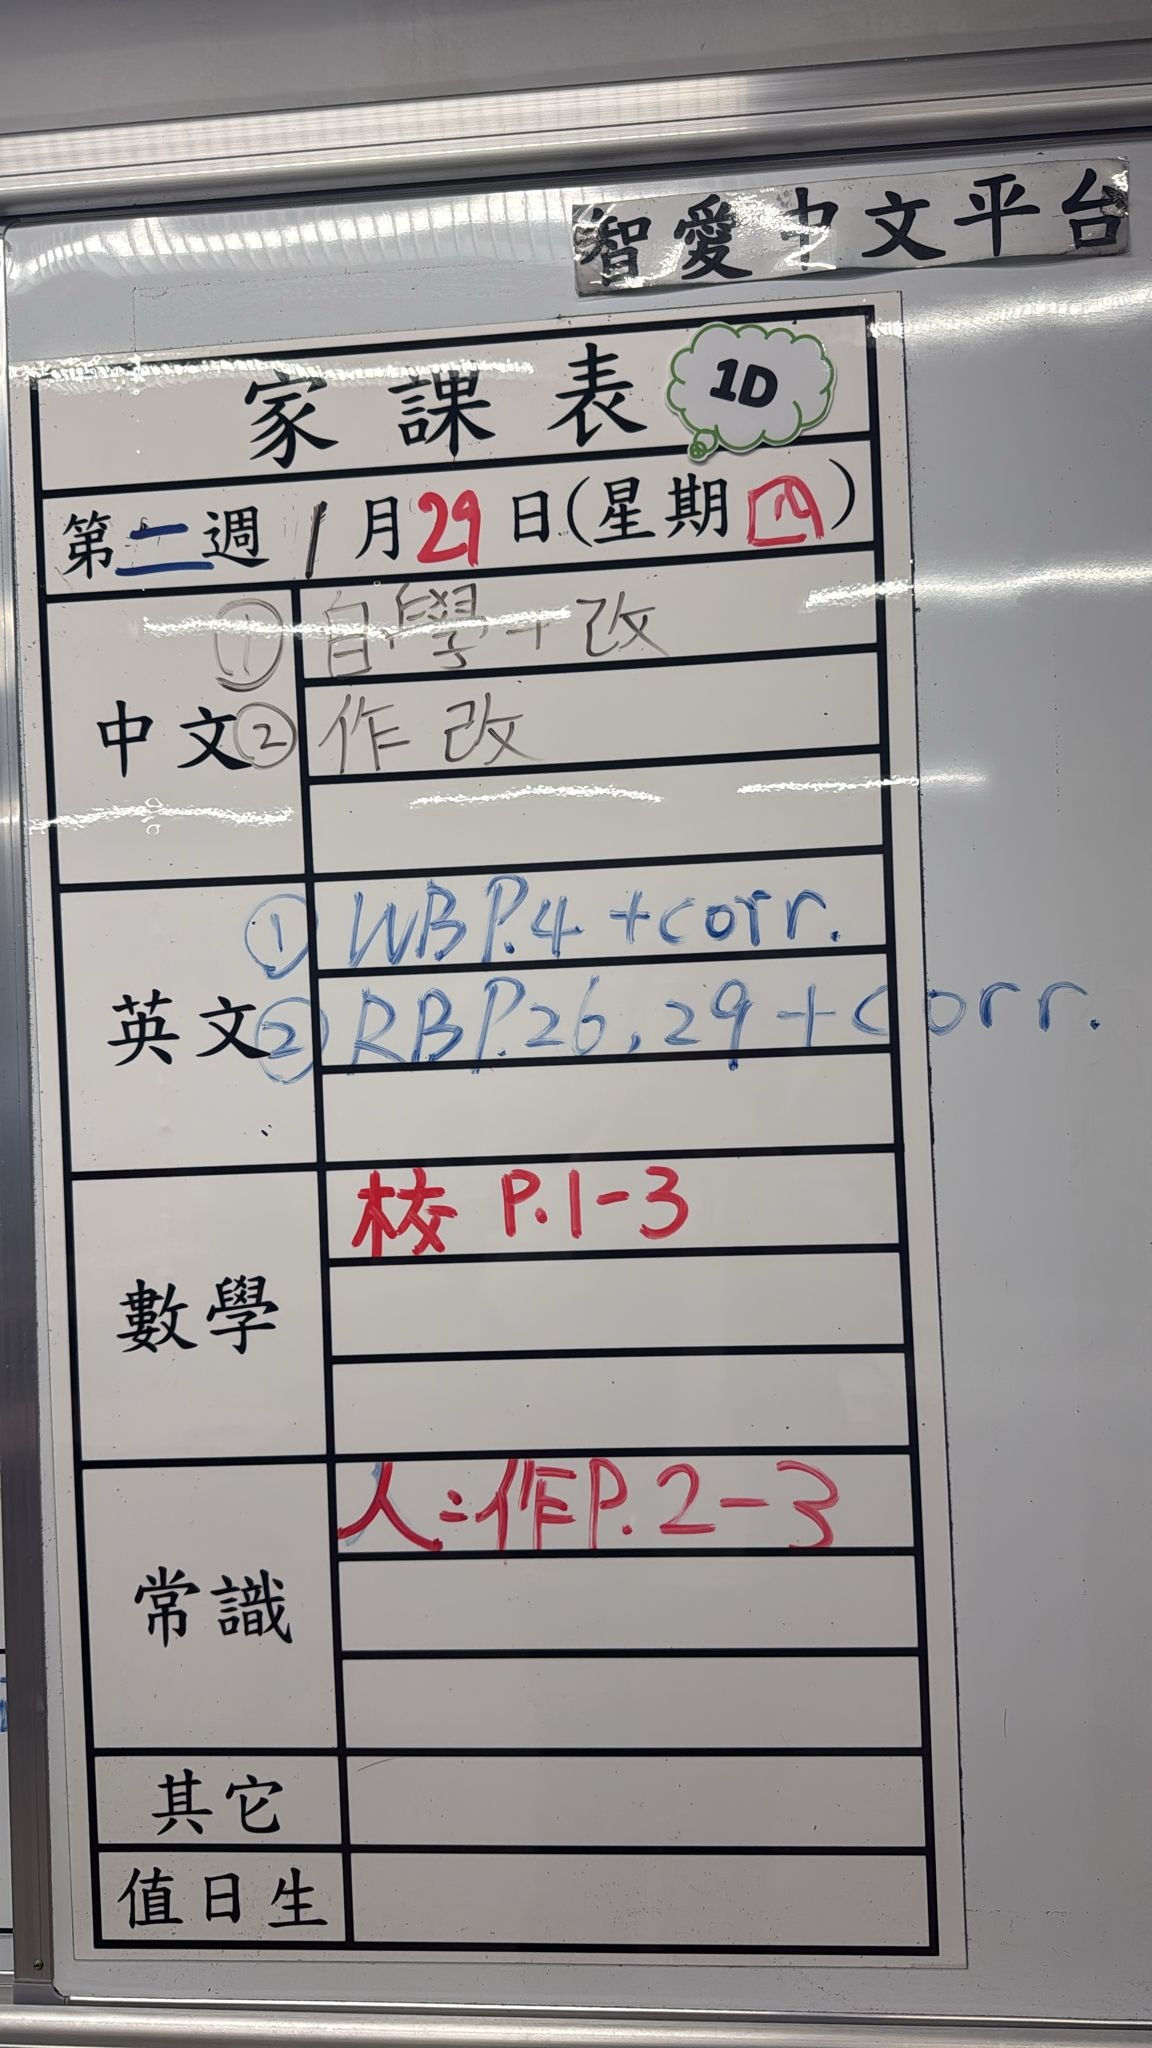 智愛中文平台
家課表 1D
第二週 1月29日(星期四)
中文 ① 自學+改
② 作改
英文 ① WB P.4 +corr.
② RB P.26, 29 + corr.
數學 校 P.1-3
常識 人:作P.2-3
其它
值日生